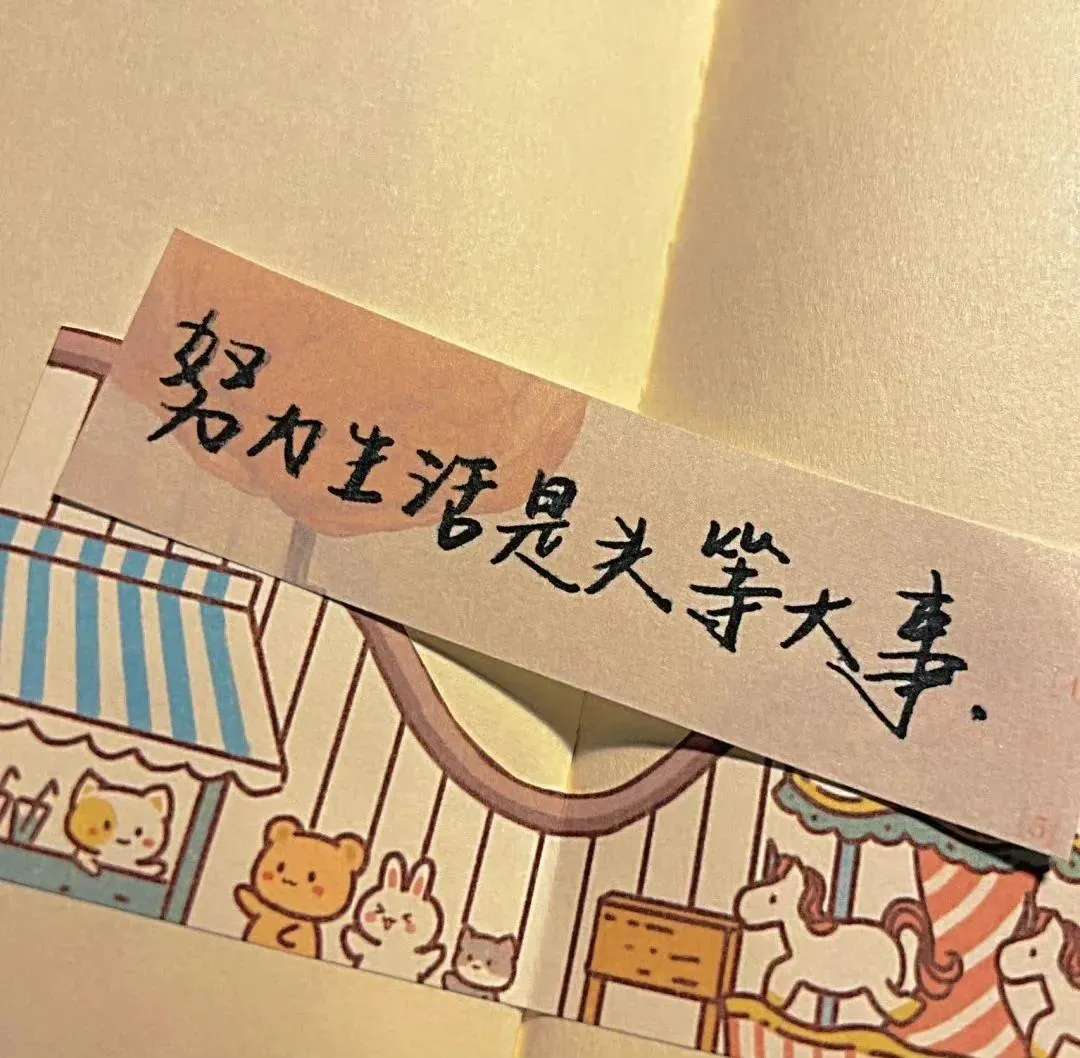 努力生活是头等大事.